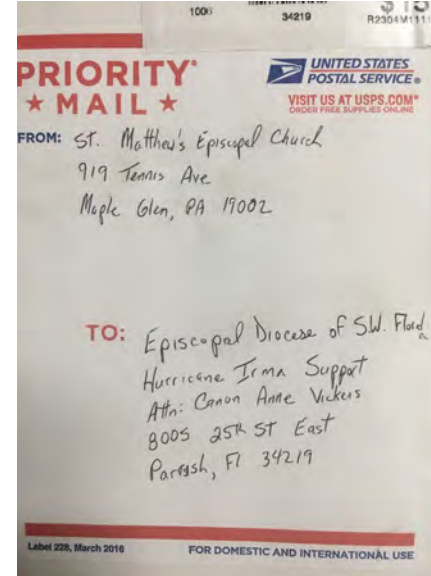 1006
34219
R2304M111
PRIORITY®
★ MAIL ★
UNITED STATES
POSTAL SERVICE®
VISIT US AT USPS.COM®
ORDER FREE SUPPLIES ONLINE
FROM: St. Matthew's Episcopal Church
919 Tennis Ave
Maple Glen, PA 19002
TO: Episcopal Diocese of S.W. Florida
Hurricane Irma Support
Attn: Canon Anne Vickers
8005 25th St East
Parrysh, Fl 34219
Label 228, March 2016
FOR DOMESTIC AND INTERNATIONAL USE